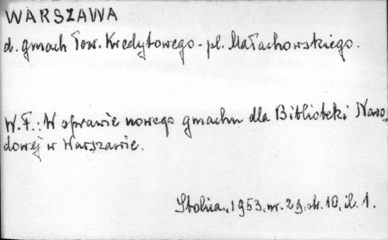 WARSZAWA
d. gmach Tow. Kredytowego - pl. Małachowskiego.
W.F.: W sprawie nowego gmachu dla Biblioteki Naro-
dowej w Warszawie.
Stolica, 1953, nr. 29, str. 10, il. 1.